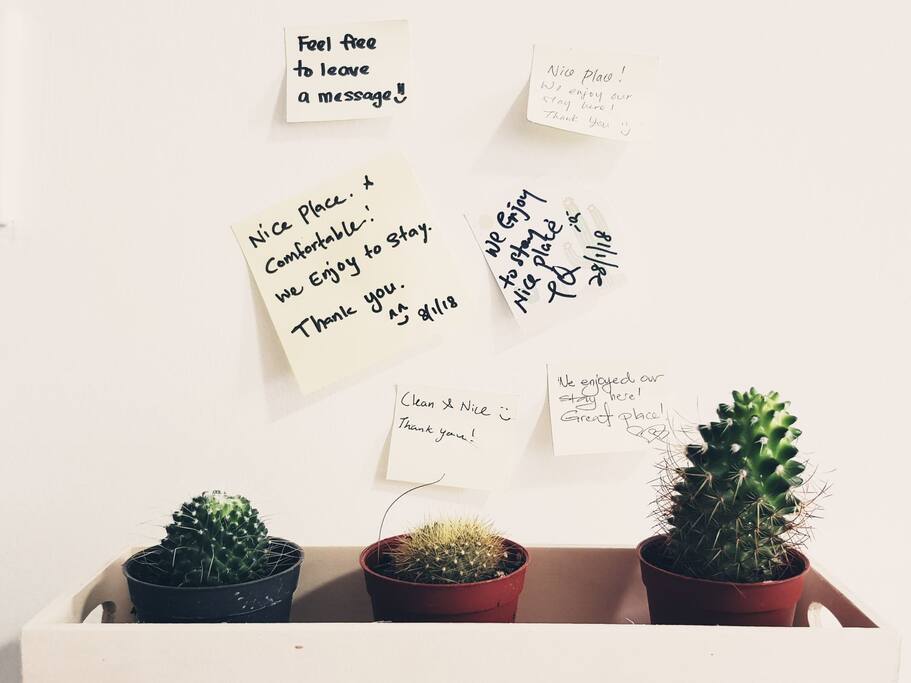 Feel free
to leave
a message!!
Nice Place!
We enjoy our
stay here!
Thank you :)
Nice Place. &
Comfortable!
We Enjoy to stay.
Thank you.
^^
8/1/18
We Enjoy
to stay
Nice place
TQ
28/1/18
Clean & Nice :)
Thank you!
We enjoyed our
stay here!
Great place!